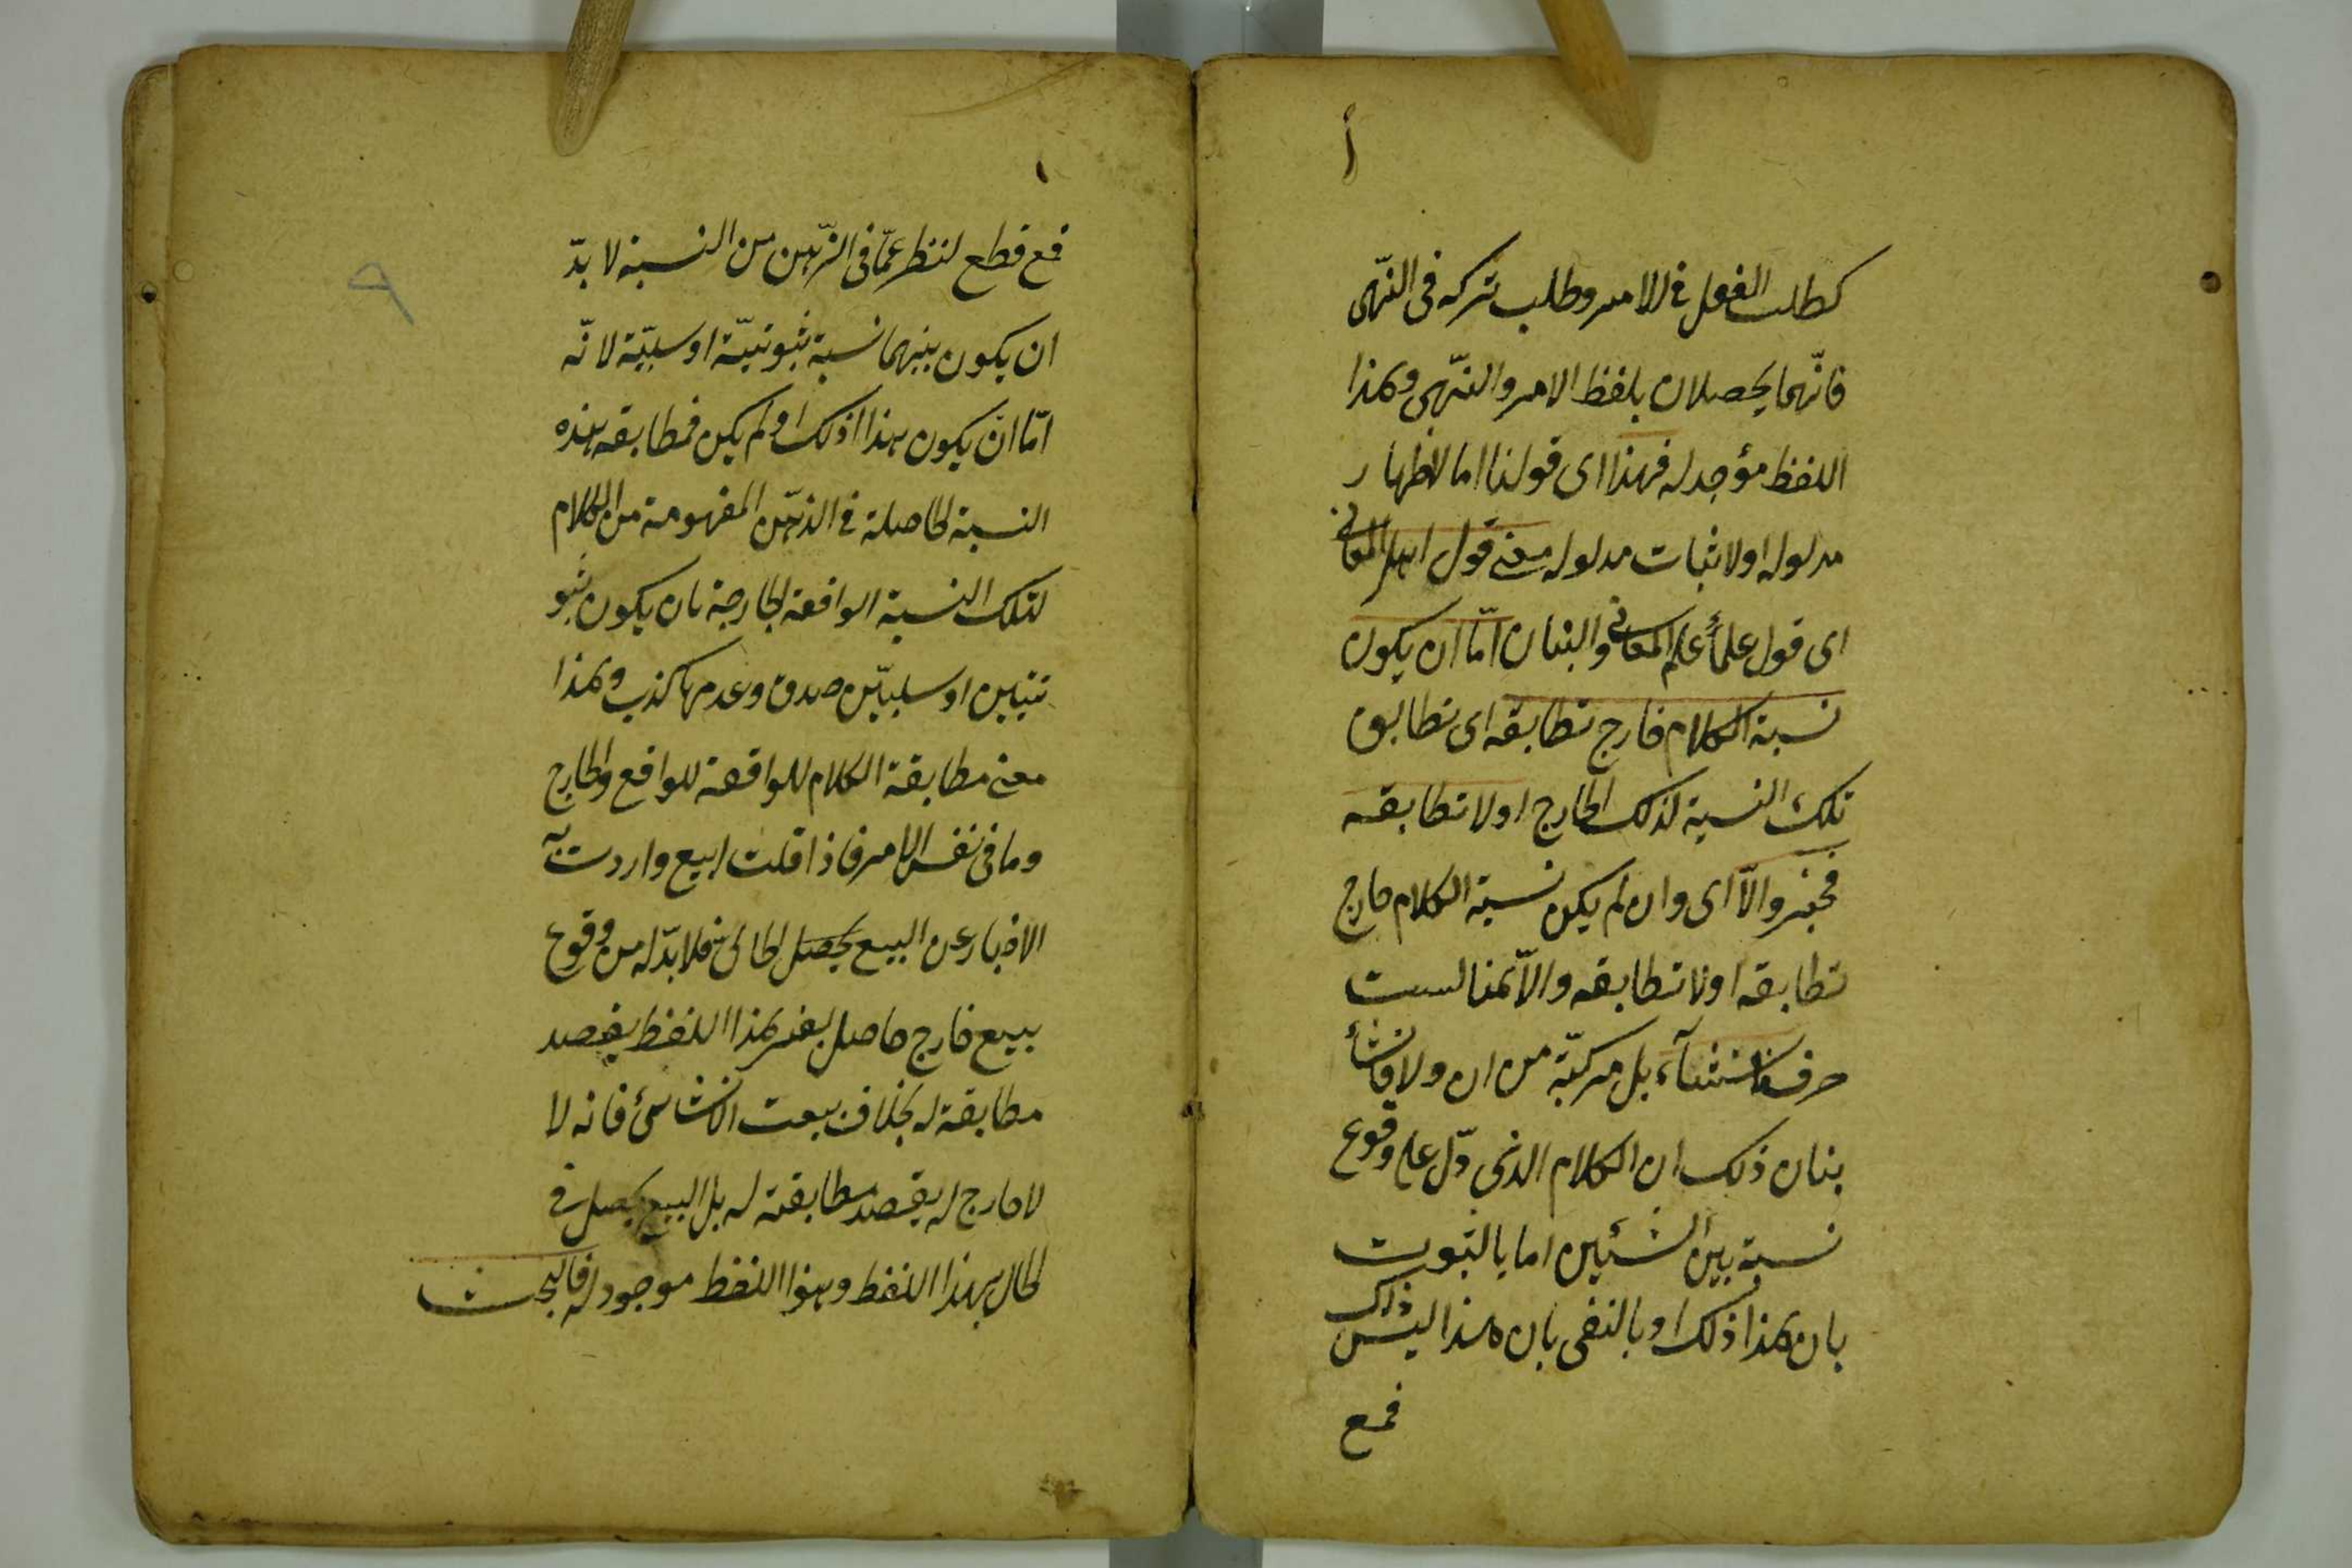 أ
كطلب الفعل فى الامر وطلب تركه فى النّهى
فانّهما يحصلان بلفظ الامر والنّهى وهذا
اللفظ مؤجد له فهذا اى قولنا اما لاظهار
مدلوله او لاثبات مدلوله معنى قول اهل المعانى
اى قول علمأ علم المعانى والبيان امّا ان يكون
نسبة الكلام خارج تطابقه اى تطابق
تلك النسبة لذلك الخارج او لا تطابقه
فخبر والّا اى وان لم يكن نسبة الكلام خارج
تطابقه او لا تطابقه والّا هنا ليست
حرف استثنآء بل مركبّة من ان ولا فانشأ
بيان ذلك ان الكلام الذى دّل على وقوع
نسبة بين الشئين اما بالثبوت
بان هذا ذلك او بالنفى بان هذا ليس ذاك
فمع
١
٩
فمع قطع لنظر عمّا فى الذّهن من النسبة لا بدّ
ان يكون بينهما نسبة ثبوتيّة او سلبيّة لانّه
امّا انّ يكون هذا اذلك او لم يكن فمطابقه هذه
النسبة لحاصلة فى الذهّن المفهومة من الكلام
لتلك النسبة الواقعة لخارجة بان يكون ثبو
تيتين او سلبيّين صدق وعدمها كذب وهذا
معنى مطابقة الكلام للواقعة للواقع ولخارج
وما فى نفس الامر فاذا قلت ابيع واردت به
الاخبار عن البيع يحصل لحالى فلا بدّ له من وقوع
بيع خارج حاصل بغير هذا اللفظ يقصد
مطابقة له بخلاف بعت الانشائى فانه لا
لا خارج له يقصد مطابقته له بل البيع يحصل فى
لحال بهذا اللفظ وهذا اللفظ موجود له فالبحث